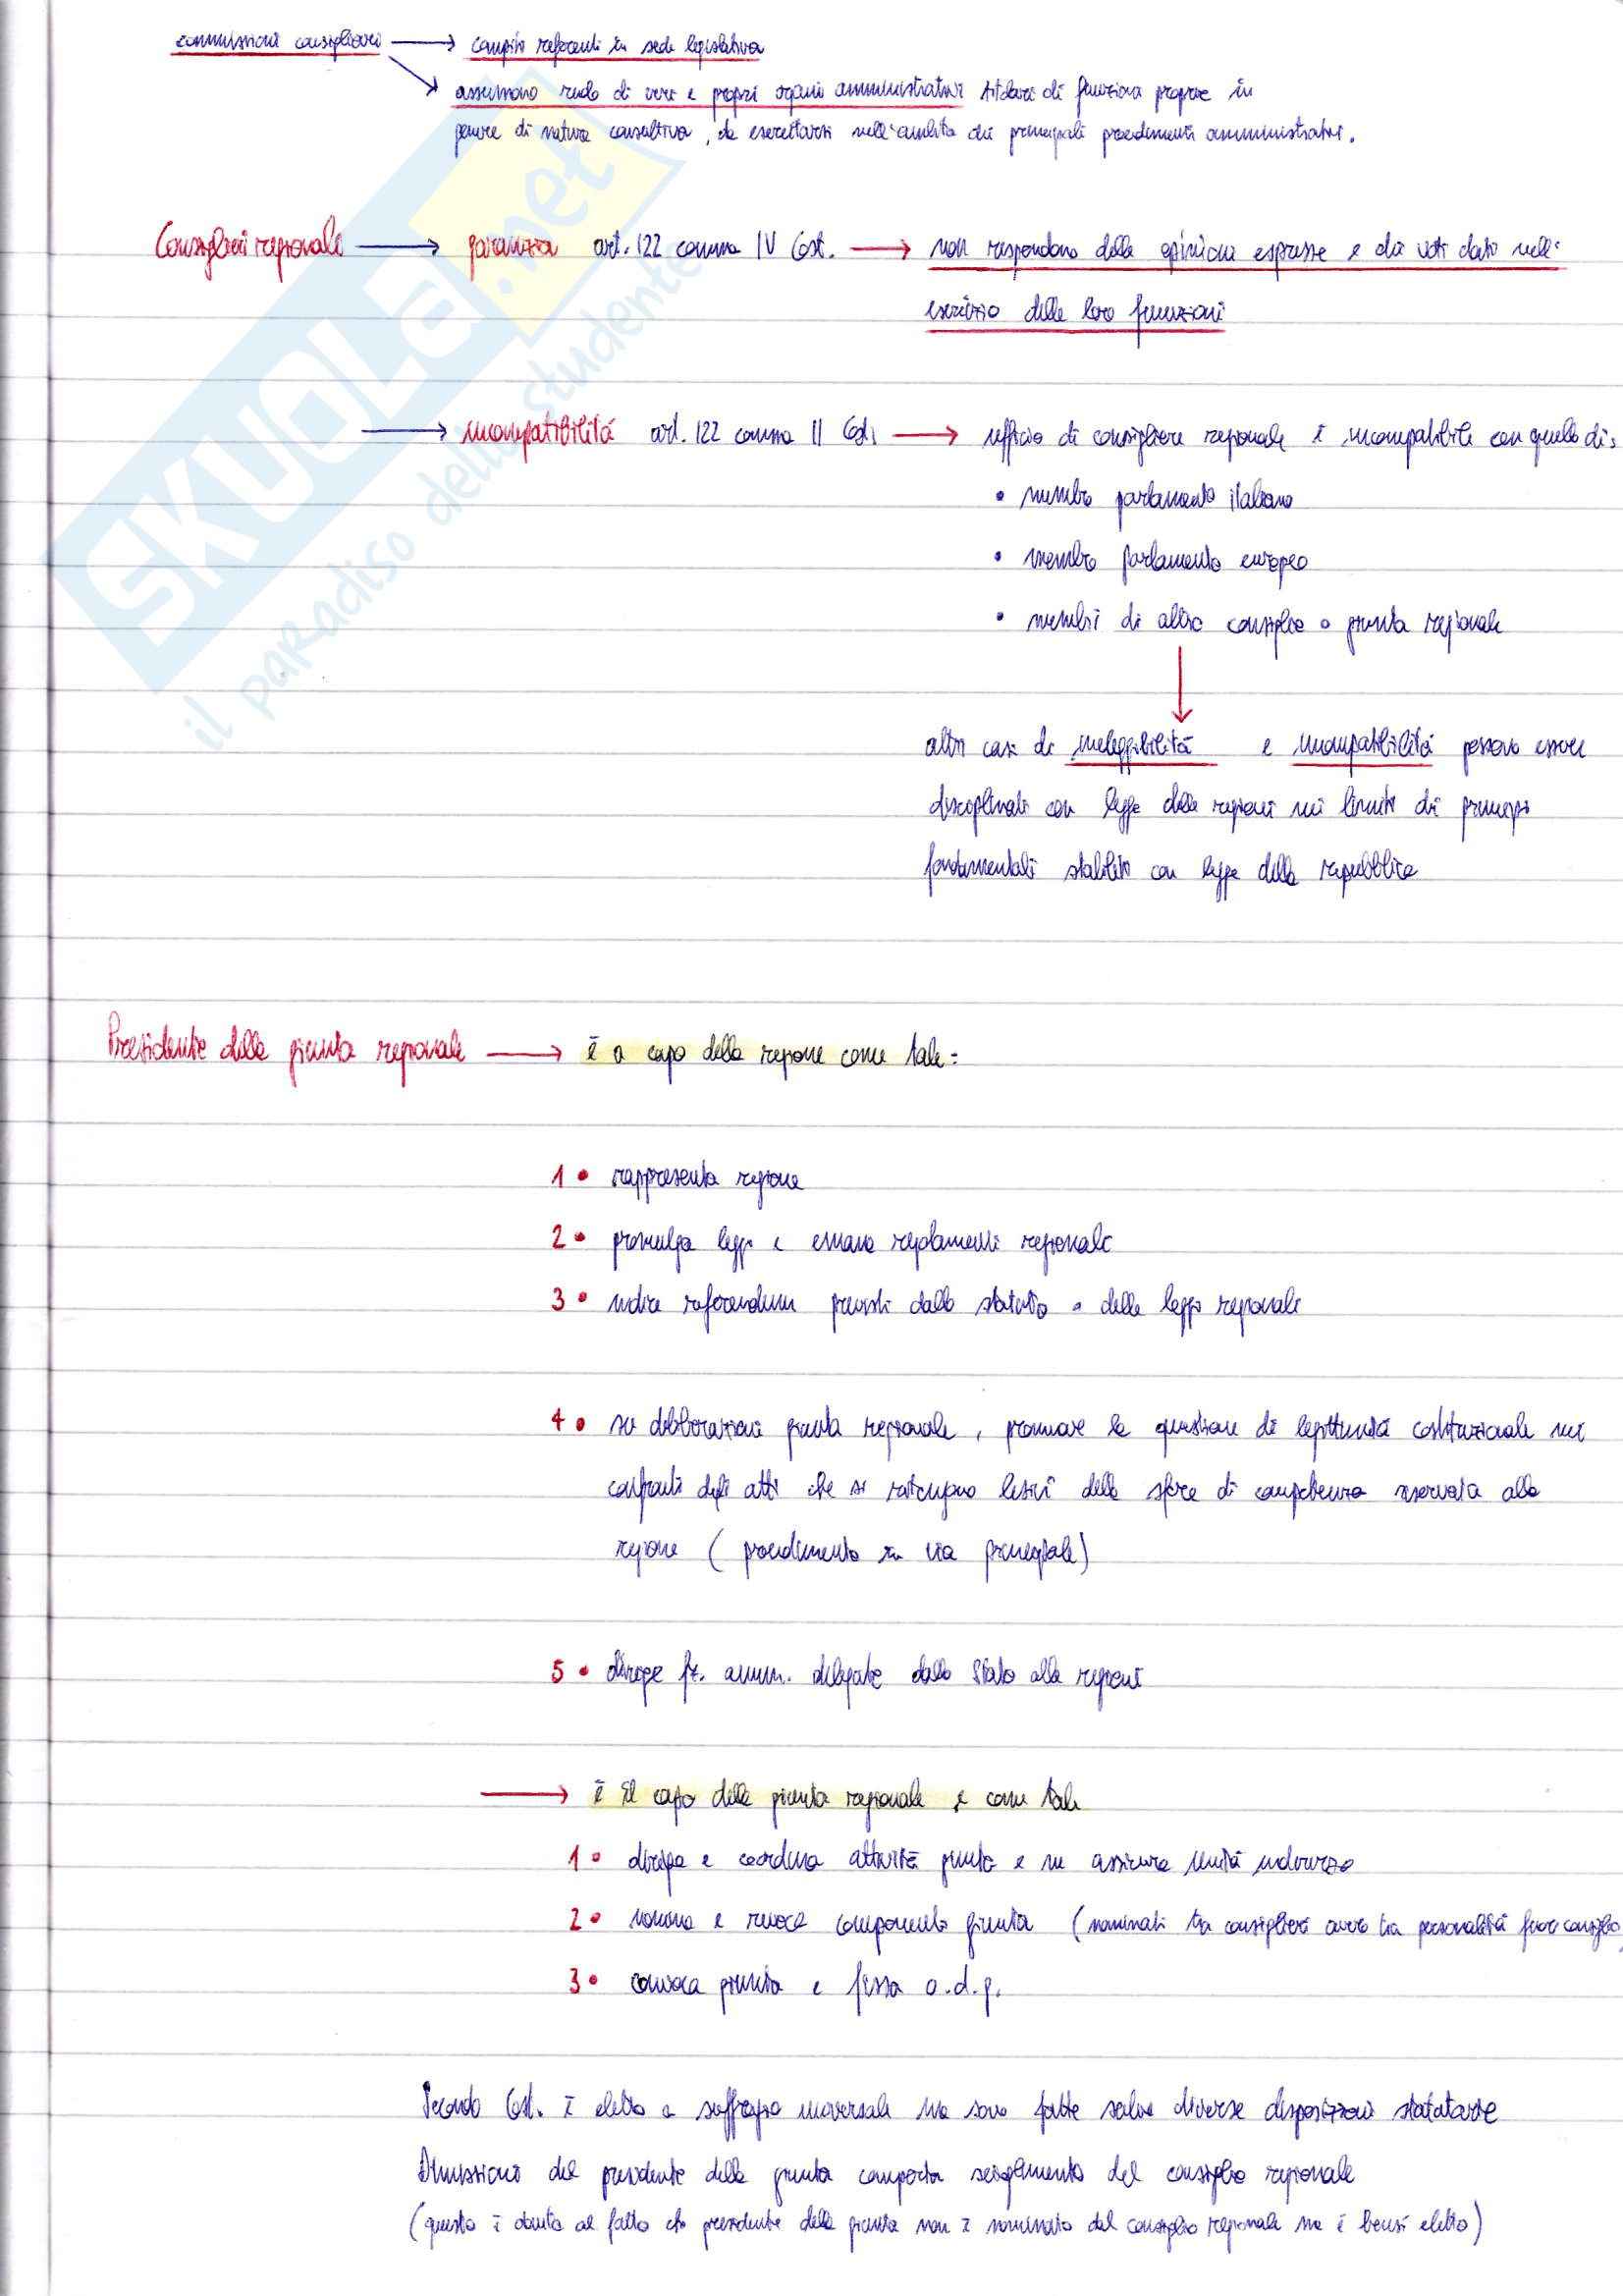 commissioni consigliari → compiti referenti in sede legislativa
assumono ruolo di veri e propri organi amministrativi titolari di funzioni proprie in
genere di natura consultiva, da esercitarsi nell'ambito dei principali procedimenti amministrativi.
Consiglieri regionali → garanzia art. 122 comma IV Cost. → non rispondono delle opinioni espresse e dei voti dati nell'
esercizio delle loro funzioni
→ incompatibilità art. 122 comma II Cost. → ufficio di consigliere regionale è incompatibile con quello di:
• membro parlamento italiano
• membro parlamento europeo
• membri di altro consiglio o giunta regionale
altri casi di ineleggibilità e incompatibilità possono essere
disciplinati con legge delle regioni nei limiti di principi
fondamentali stabiliti con legge della repubblica
Presidente della giunta regionale → è a capo della regione come tale:
1 • rappresenta regione
2 • promulga leggi e emana regolamenti regionali
3 • indice referendum previsti dallo statuto o delle leggi regionali
4 • su deliberazioni giunta regionale, promuove la questione di legittimità costituzionale nei
confronti degli atti che si ritengono lesivi delle sfere di competenza riservata alla
regione (procedimento in via principale)
5 • dirige fz. amm. delegate dallo Stato alle regioni
→ è il capo della giunta regionale e come tale
1 • dirige e coordina attività giunta e ne assicura unità indirizzo
2 • nomina e revoca componenti giunta (nominati tra consiglieri ovvero tra personalità fuori consiglio)
3 • convoca giunta e fissa o.d.g.
Secondo Cost. è eletto a suffragio universale ma sono fatte salve diverse disposizioni statutarie
Dimissioni del presidente della giunta comporta scioglimento del consiglio regionale
(questo è dovuto al fatto che presidente della giunta non è nominato dal consiglio regionale ma è bensì eletto)
SKUOLA.net
il paradiso dello studente